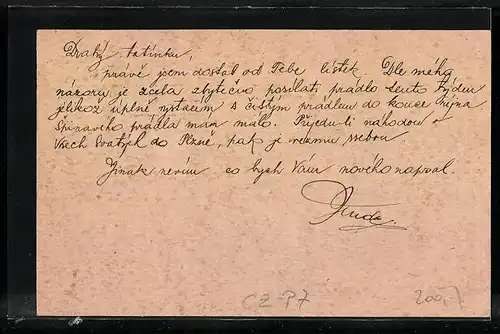 Drahý tatínku,
právě jsem dostal od Tebe lístek. Dle mého
názoru je zcela zbytečno posílati prádlo tento týden
jelikož úplně vystačím s čistým prádlem do konce října
Špinavého prádla mám málo. Přijedu-li náhodou o
Všech Svatých do Plzně, pak je vezmu sebou.
Jinak nevím co bych Vám nového napsal.
CZ P7
200,-